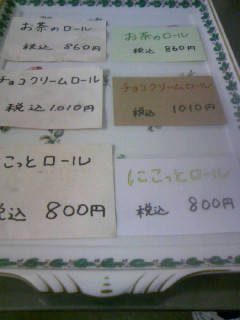 お茶のロール
税込 860円
お茶のロール
税込 860円
チョコクリームロール
税込 1010円
チョコクリームロール
税込 1010円
にこっとロール
税込 800円
にこっとロール
税込 800円